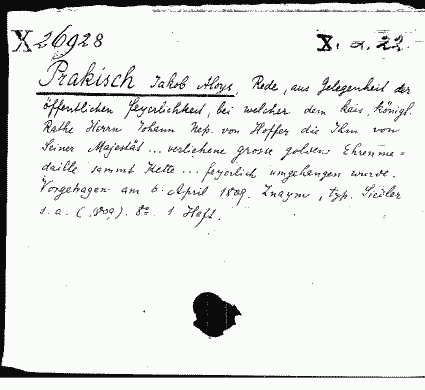 X 26928
X. a. 22.
Prakisch Jakob Aloys, Rede, aus Gelegenheit der
öffentlichen feyerlichkeit, bei welcher dem kais. königl.
Rathe Herrn Johann Nep. von Hoffer die Ihm von
Seiner Majestät ... verliehene grosse goldene Ehrenme=
daille sammt Kette ... feyerlich umgehangen wurde.
Vorgetragen am 6. April 1809. Znaym, typ. Siedler
s. a. (1809). 8o. 1 Heft.